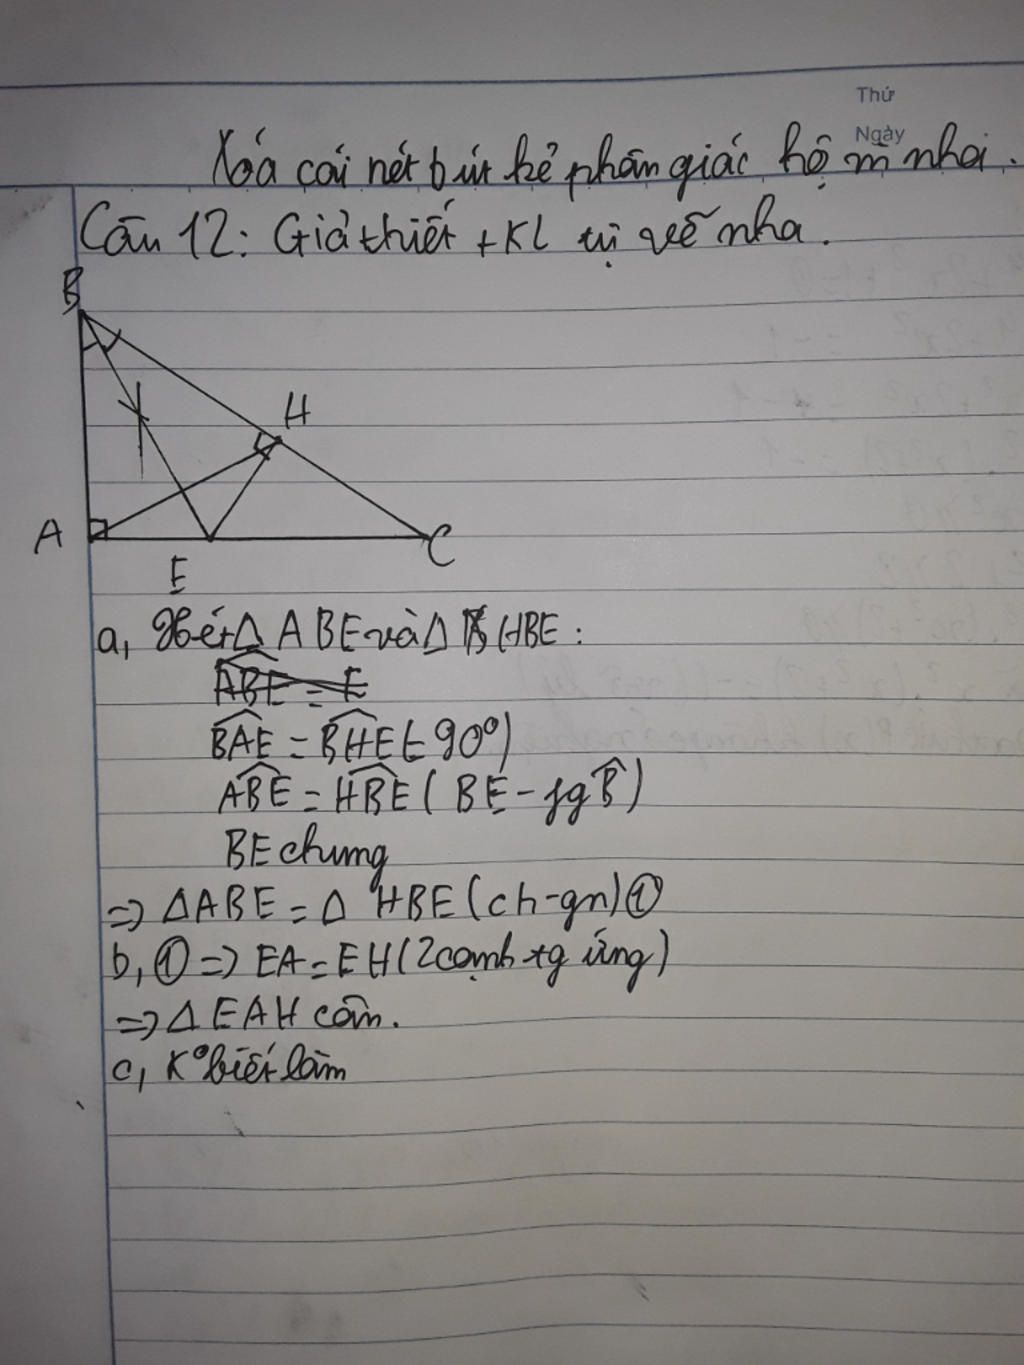 Thứ
Ngày
Xóa cái nét bút kẻ phân giác hộ m nhai.
Câu 12: Giả thiết + KL tự vẽ nha.
B
H
A
E
C
a, Xét Δ ABE và Δ HBE:
BAE = BHE (= 90°)
ABE = HBE ( BE - fg B)
BE chung
=> ΔABE = Δ HBE (ch-gn) ①
b, ① => EA = EH (2 cạnh tg ứng)
=> Δ EAH cân.
c, K° biết làm